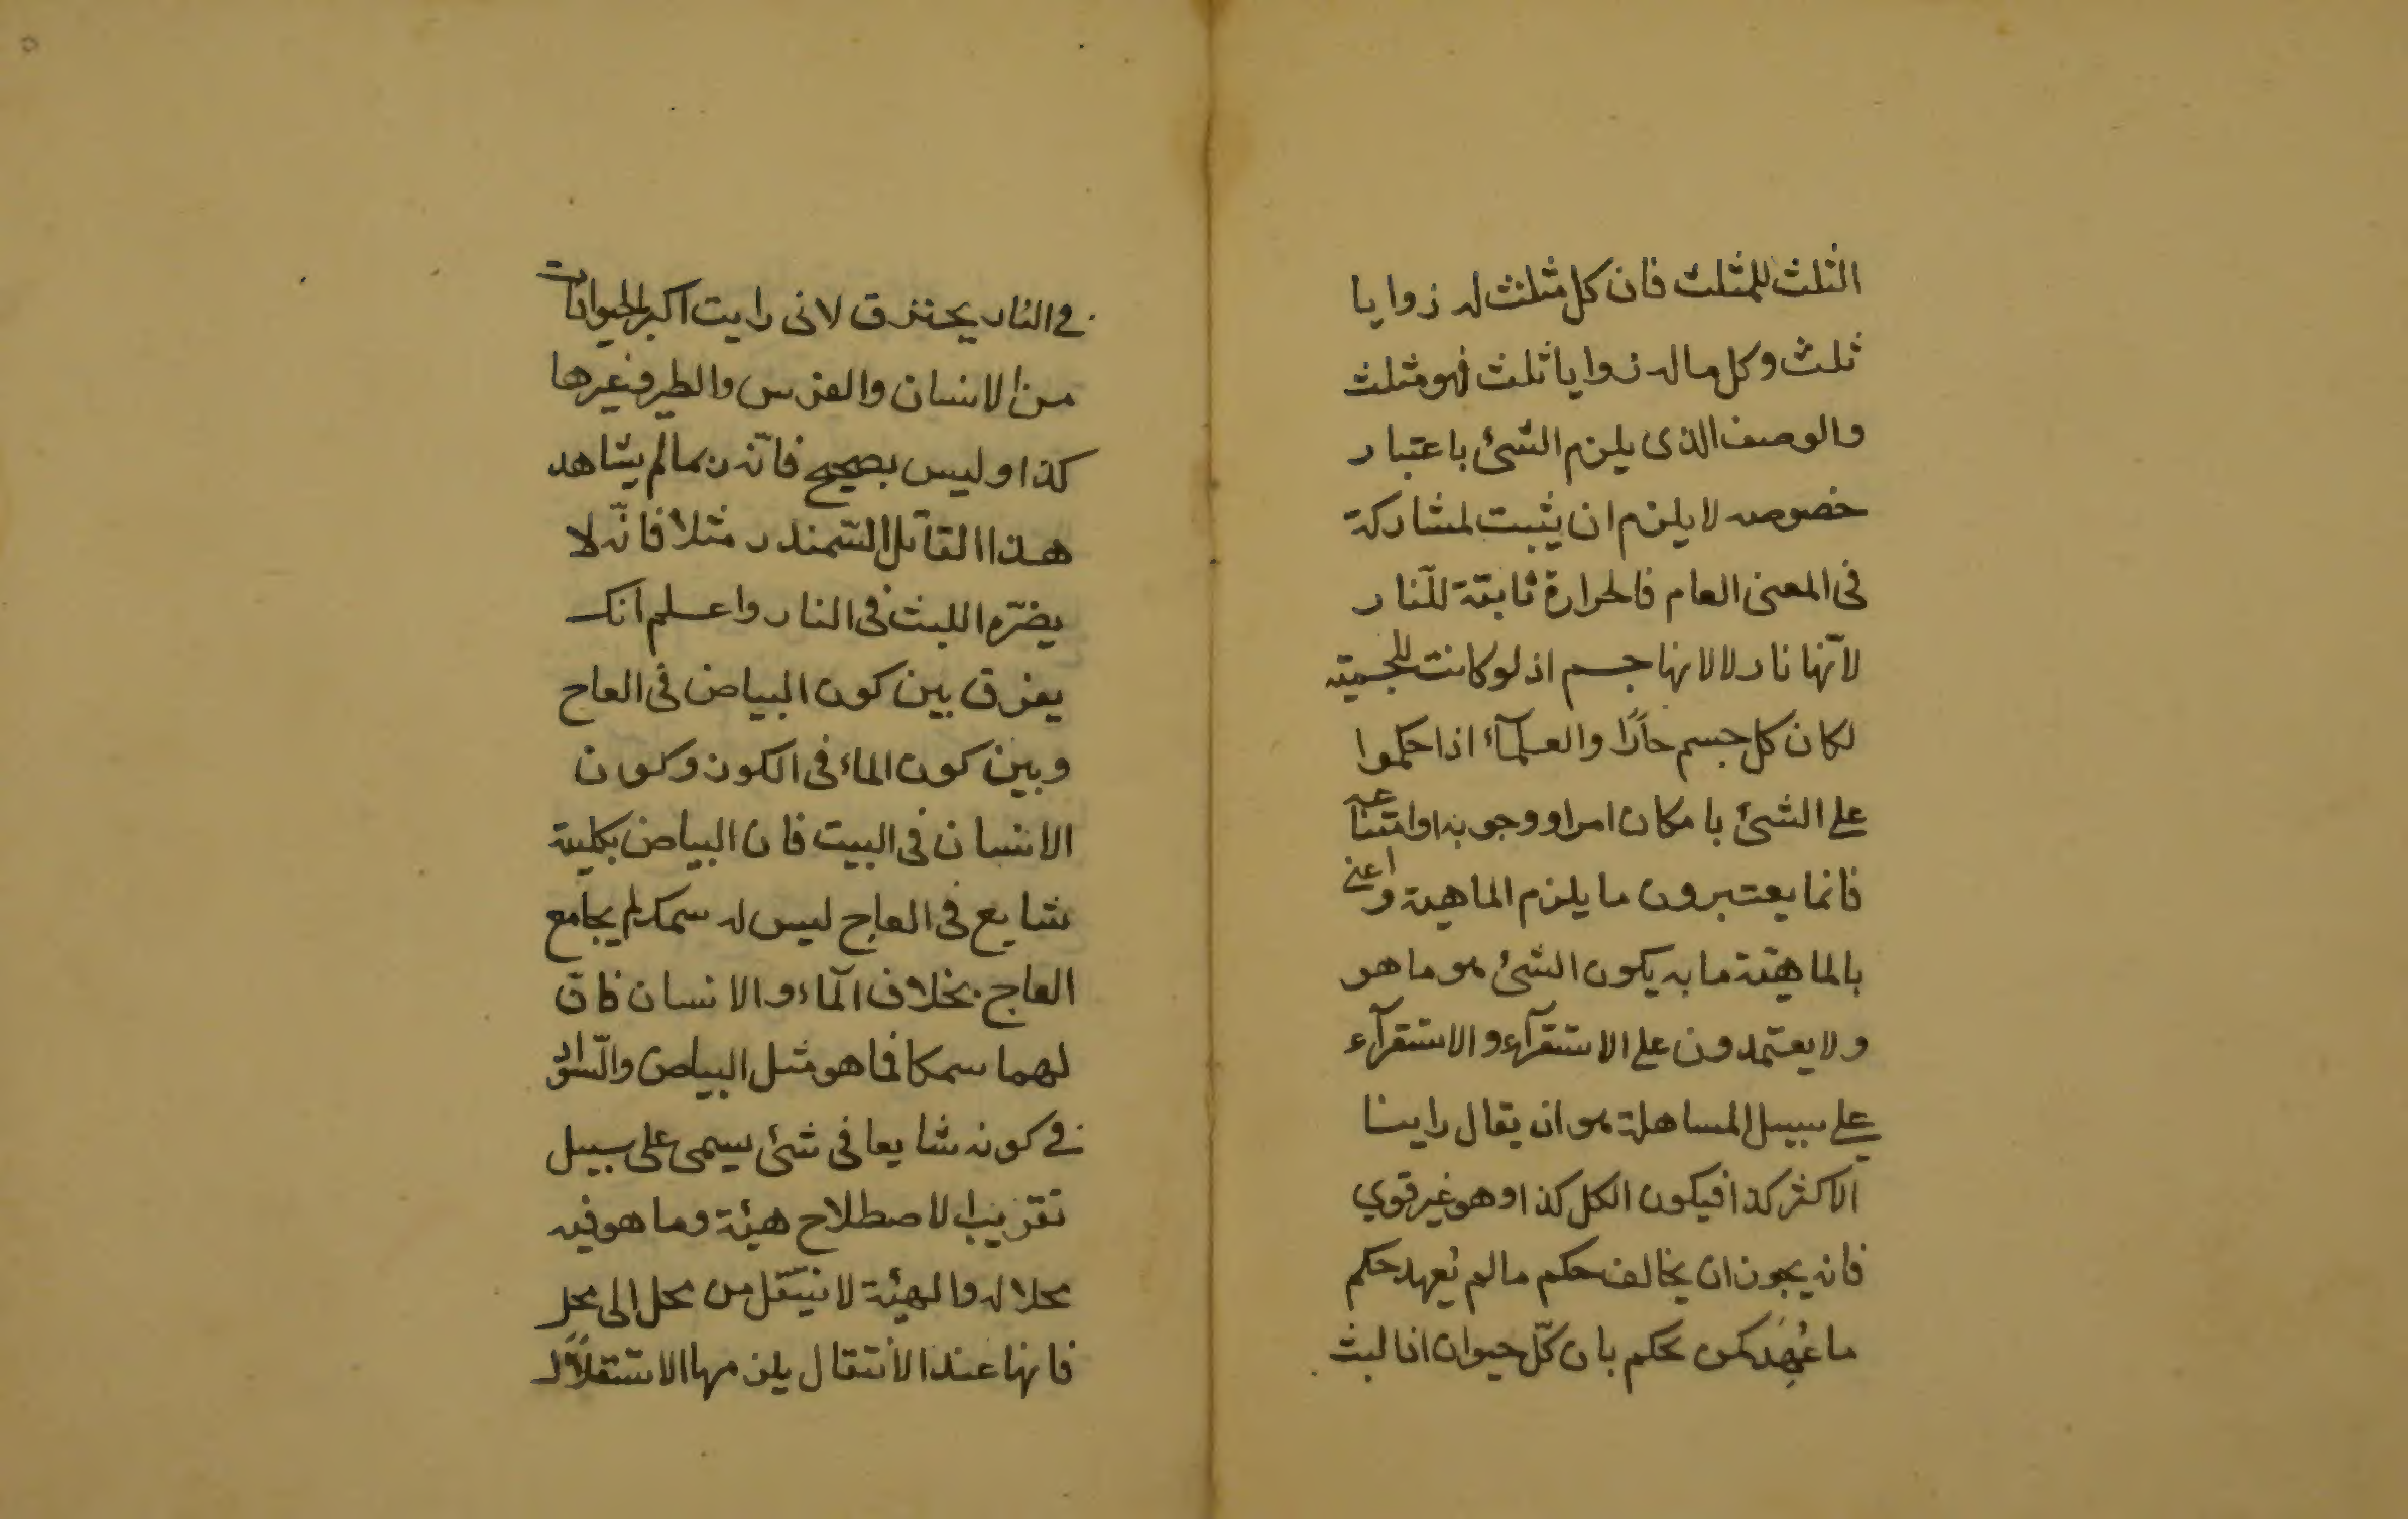 الثلث للمثلث فان كل مثلث له زوايا
ثلث وكل ما له زوايا ثلث فهو مثلث
والوصف الذى يلزم الشئ باعتبار
خصوصه لا يلزم ان يثبت لمشاركة
فى المعنى العام فالحرارة ثابتة للنار
لانّها نار لا لانها جسم اذ لو كانت للجسمية
لكان كل جسم حارًا والعلمآء اذا حكموا
على الشئ بامكان امر او وجوبه او امتناعه
فانما يعتبرون ما يلزم الماهية واعنى
بالماهية ما به يكون الشئ هو ما هو
ولا يعتمدون على الاستقرآء والاستقرآء
على سبيل المساهلة هو ان يقال راينا
الاكثر كذا فيكون الكل كذا وهو غير قوي
فانه يجوز ان يخالف حكم ما لم يُعهد حكم
ما عُهِدَ كمن يحكم بان كلّ حيوان اذا لبث
فى النار يحترق لانى رايت اكثر الحيوانات
من الانسان والفرس والطير وغيرها
كذا وليس بصحيح فانّه ربما لم يشاهد
هذا القآئل السّمندر مثلا فانّه لا
يضرّه اللبث فى النار واعلم انك
يفرق بين كون البياض فى العاج
وبين كون الماء فى الكوز وكون
الانسان فى البيت فان البياض بكلية
شايع فى العاج ليس له سمك لم يجامع
العاج بخلاف المآء والانسان فان
لهما سمكا فما هو مثل البياض والسّواد
فى كونه شايعا فى شئ يسمى على سبيل
تقريب الاصطلاح هيئة وما هو فيه
محلا له والهيئة لا ينتقل من محل الى محل
فانها عند الانتقال يلزمها الاستقلال